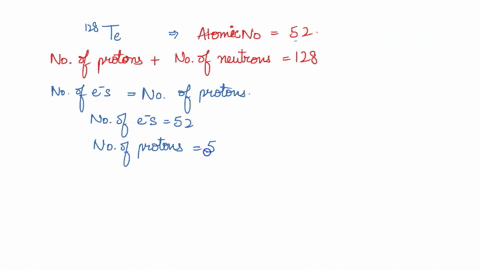 ¹²⁸Te ⇒ Atomic No = 52.
No. of protons + No. of neutrons = 128
No. of e⁻s = No. of protons.
No. of e⁻s = 52
No. of protons = 5